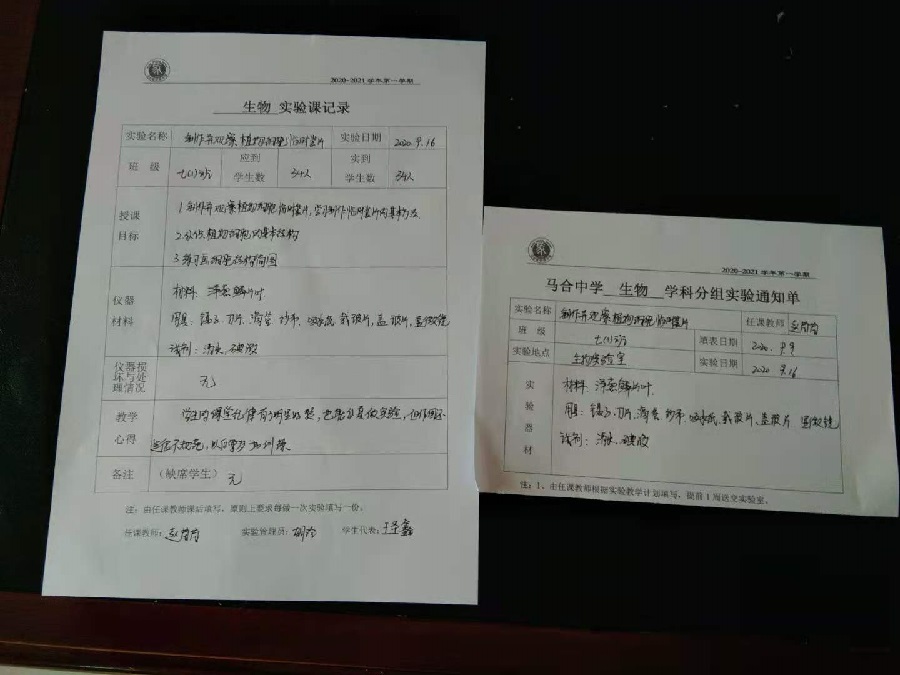 2020-2021 学年第一学期
生物 实验课记录
实验名称 制作并观察植物细胞临时装片 实验日期 2020.9.16
班 级 七(1)班 应到学生数 34人 实到学生数 34人
授课目标
1.制作并观察植物细胞临时装片,学习制作临时装片的基本方法
2.认识植物细胞的基本结构
3.练习画细胞结构简图
仪器材料
材料: 洋葱鳞片叶.
用具: 镊子、刀片、滴管、纱布、吸水纸、载玻片、盖玻片、显微镜
试剂: 清水、碘液
仪器损坏与处理情况 无
教学心得
学生的课堂纪律有 也能认真做实验,但
不规范,以后 训练
备注 (缺席学生) 无
注:由任课教师课后填写,原则上要求每做一次实验填写一份。
任课教师: 实验管理员: 学生代表:
2020-2021 学年第一学期
马合中学 生物 学科分组实验通知单
实验名称 制作并观察植物细胞临时装片 任课教师
班 级 七(1)班 填表日期 2020. 9. 9
实验地点 生物实验室 实验日期 2020 9.16
实验器材
材料: 洋葱鳞片叶
用具: 镊子、刀片、滴管、纱布、吸水纸、载玻片、盖玻片 显微镜
试剂: 清水、碘液
注:1、由任课教师根据实验教学计划填写,提前 1 周送交实验室。